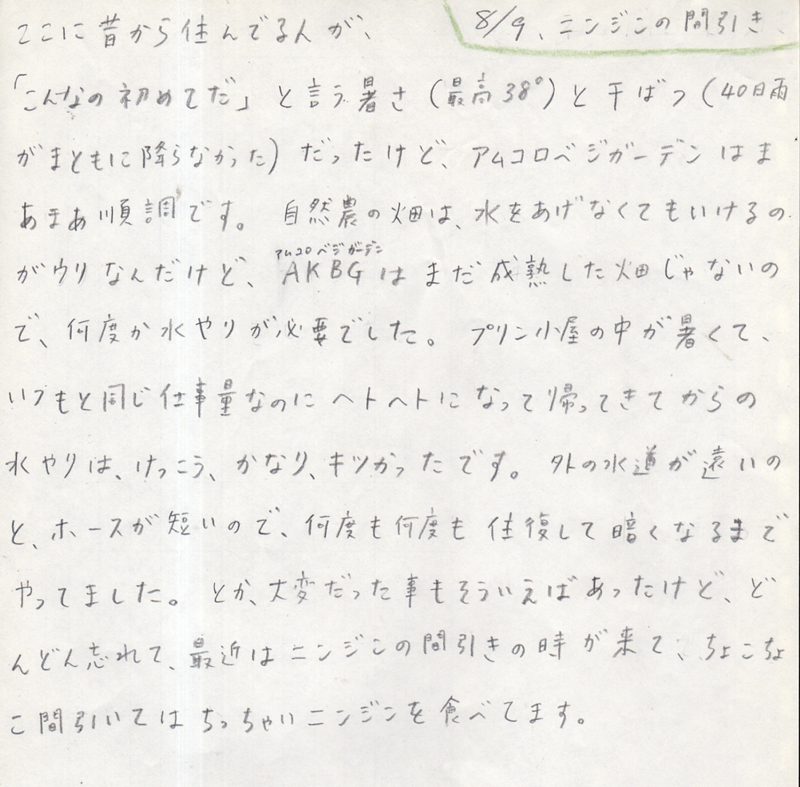 8/9、ニンジンの間引き、
ここに昔から住んでる人が、
「こんなの初めてだ」と言う暑さ(最高38°)と干ばつ(40日雨
がまともに降らなかった)だったけど、アムコロベジガーデンはま
あまあ順調です。 自然農の畑は、水をあげなくてもいけるの
がウリなんだけど、AKBGはまだ成熟した畑じゃないの
アムコロベジガーデン
で、何度か水やりが必要でした。 プリン小屋の中が暑くて、
いつもと同じ仕事量なのにヘトヘトになって帰ってきてからの
水やりは、けっこう、かなり、キツかったです。 外の水道が遠いの
と、ホースが短いので、何度も何度も往復して暗くなるまで
やってました。 とか、大変だった事もそういえばあったけど、ど
んどん忘れて、最近はニンジンの間引きの時が来て、ちょこちょ
こ間引いてはちっちゃいニンジンを食べてます。